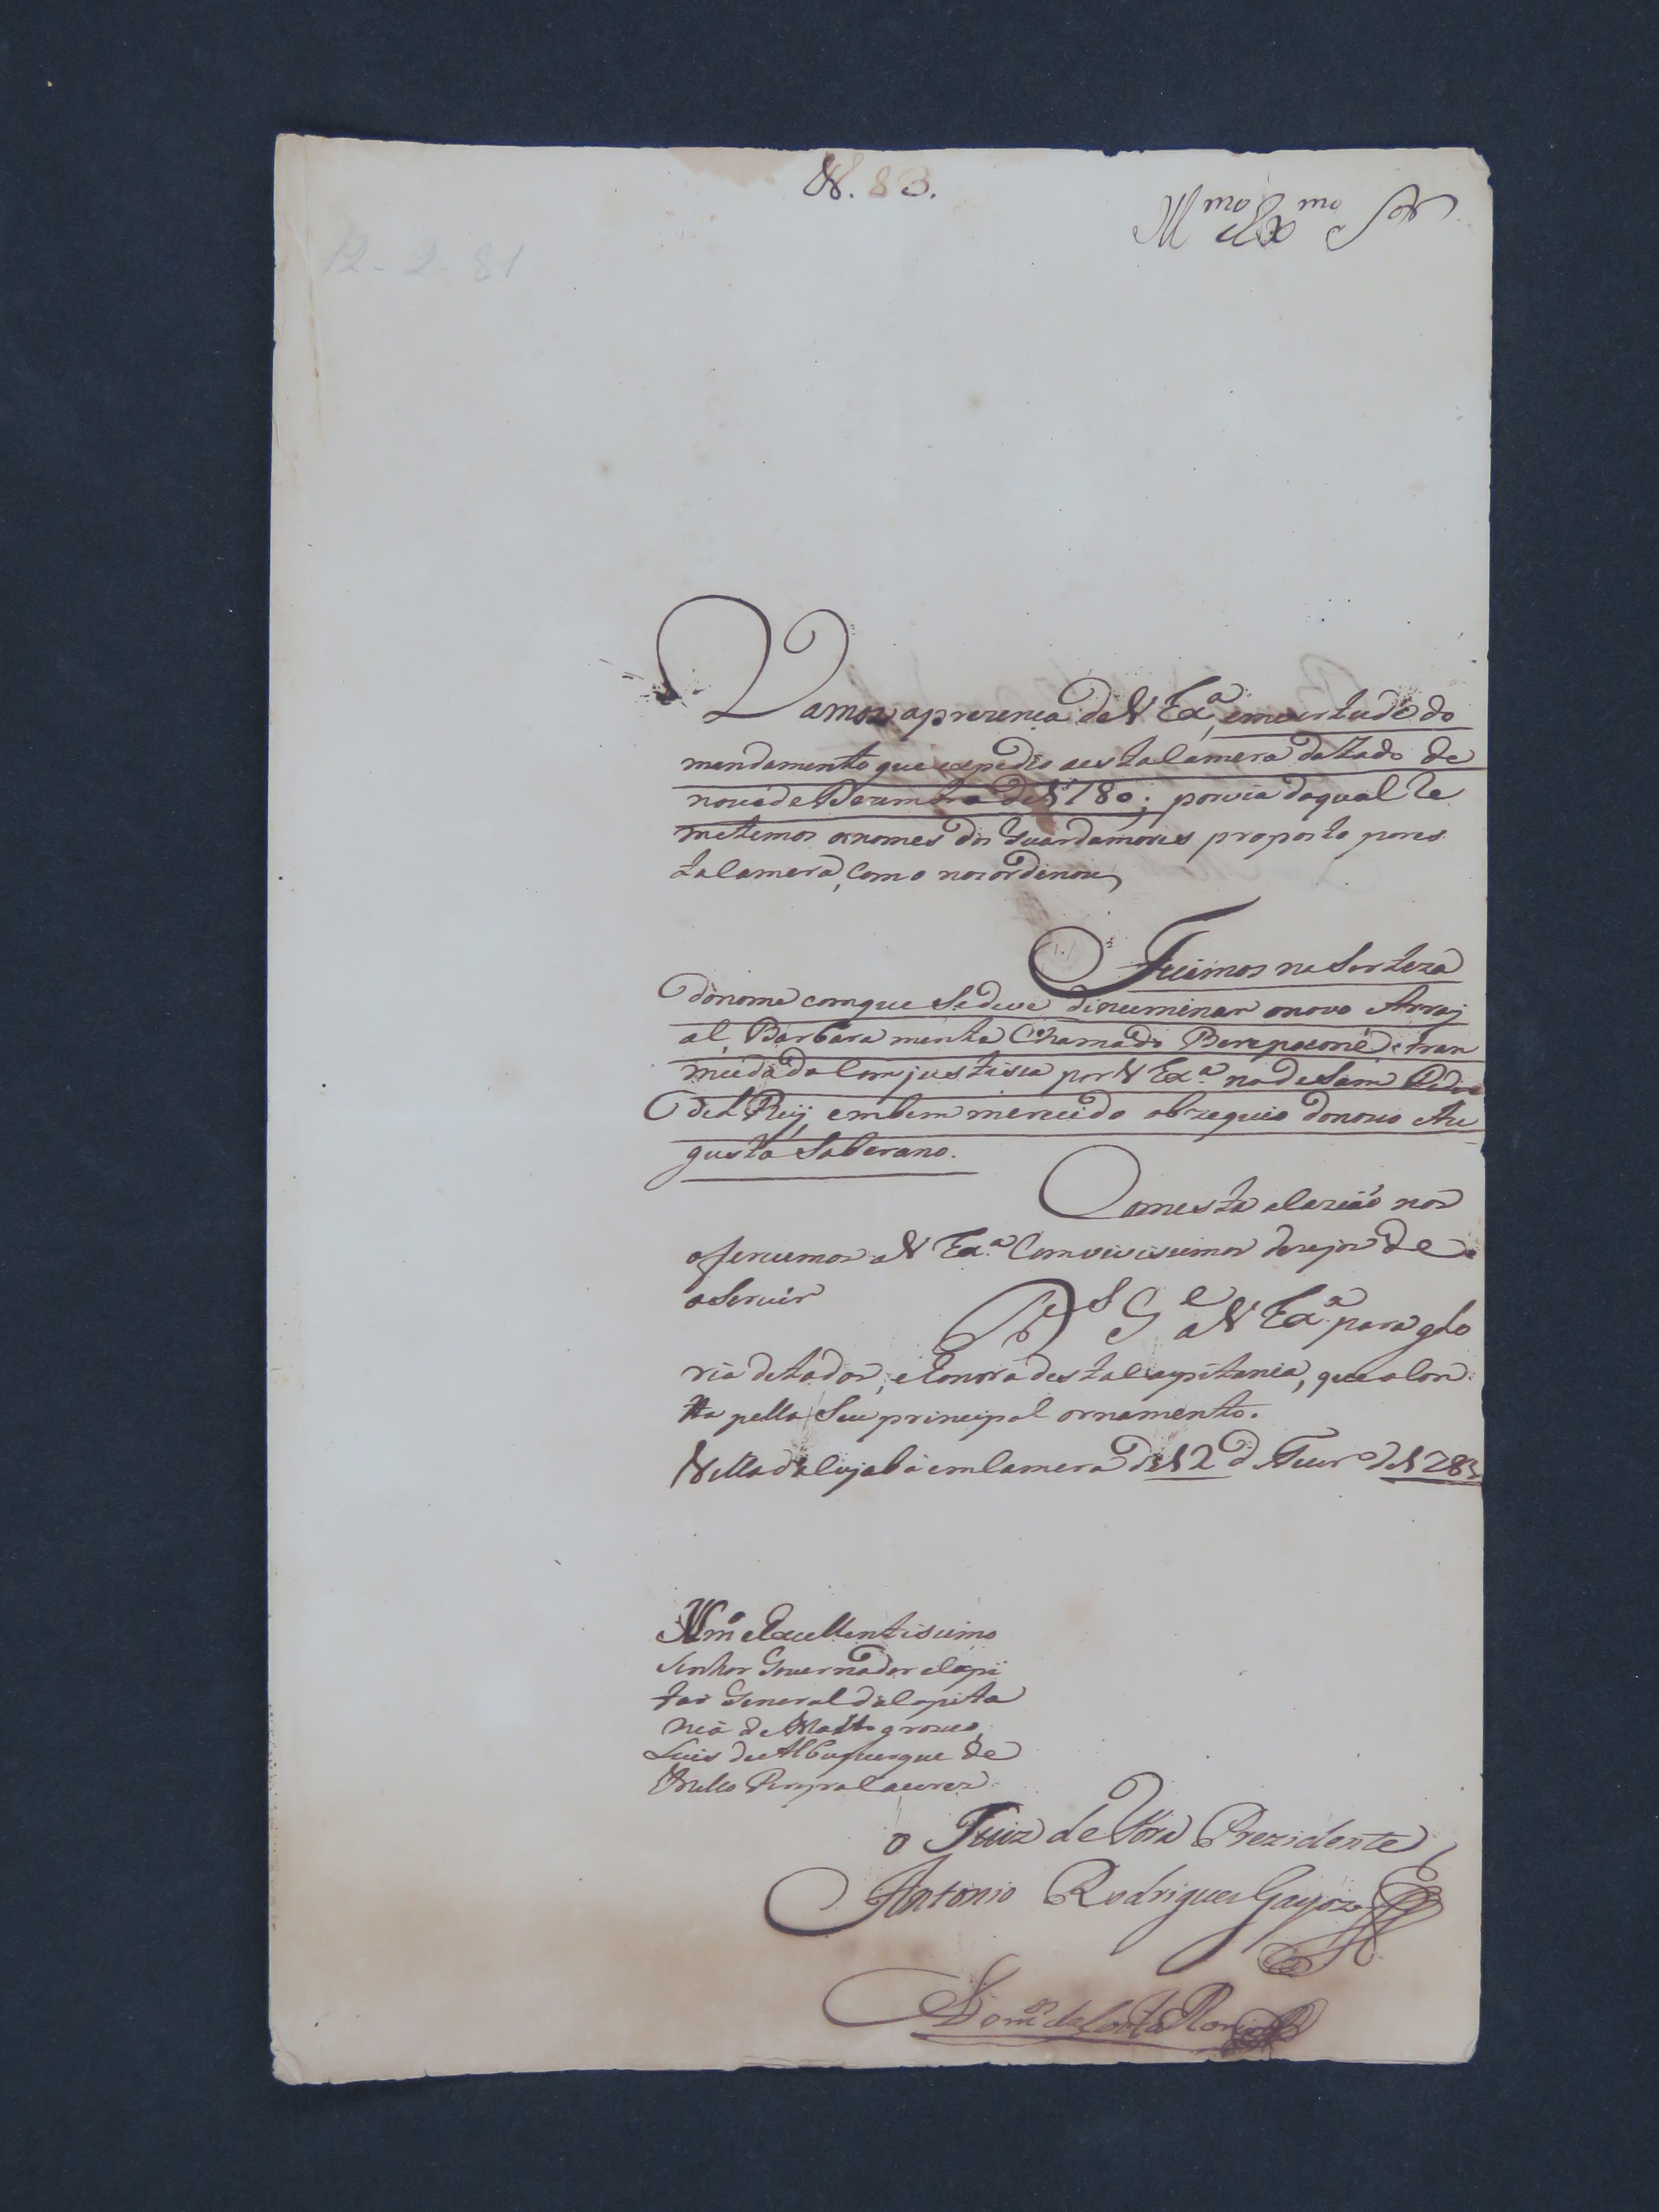 N. 83.
Illmo Exmo Snr
12-2-81
Vamos aprezença de V Exa, emvertude do
mandamento que expedio aesta Camera datado de
nove de Dezembro de 1780; porvia doqual Re
metemos osnomes dos Guardamores proposto pores
ta Camera, Como nos ordenou
Ficamos na Serteza
donome comque Sedeve dinuminar onovo Array
al, Barbara mente Chamado Beripoconé, e tran
mudado Com justisia por V Exa no de Sam Pedro
del Rey, embem merecido obzequio donoso Au
gusto Soberano.
Comesta ocazião nos
oferecemos a V Exa Comvivissimos dezejos de
o Servir
Ds Ge a V Exa para glo
ria detodos, e Conora desta Capitania, que o Con
tta pello Seu principal ornamento.
Villa do Cuyabá em Camera de 12 de Fevro de 1781
Illmo e Excellentissimo
Senhor Governador e Capi
tão General da Capita
nia de Matto grosso
Luis de Albuquerque de
Mello Pereyra Caceres
o Juiz de Fora Prezidente
Antonio Rodrigues Gayozo
Domos da Costa